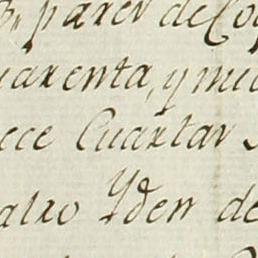 parer de Co
uarenta, y mi
ece Cuartar
atro Yden de